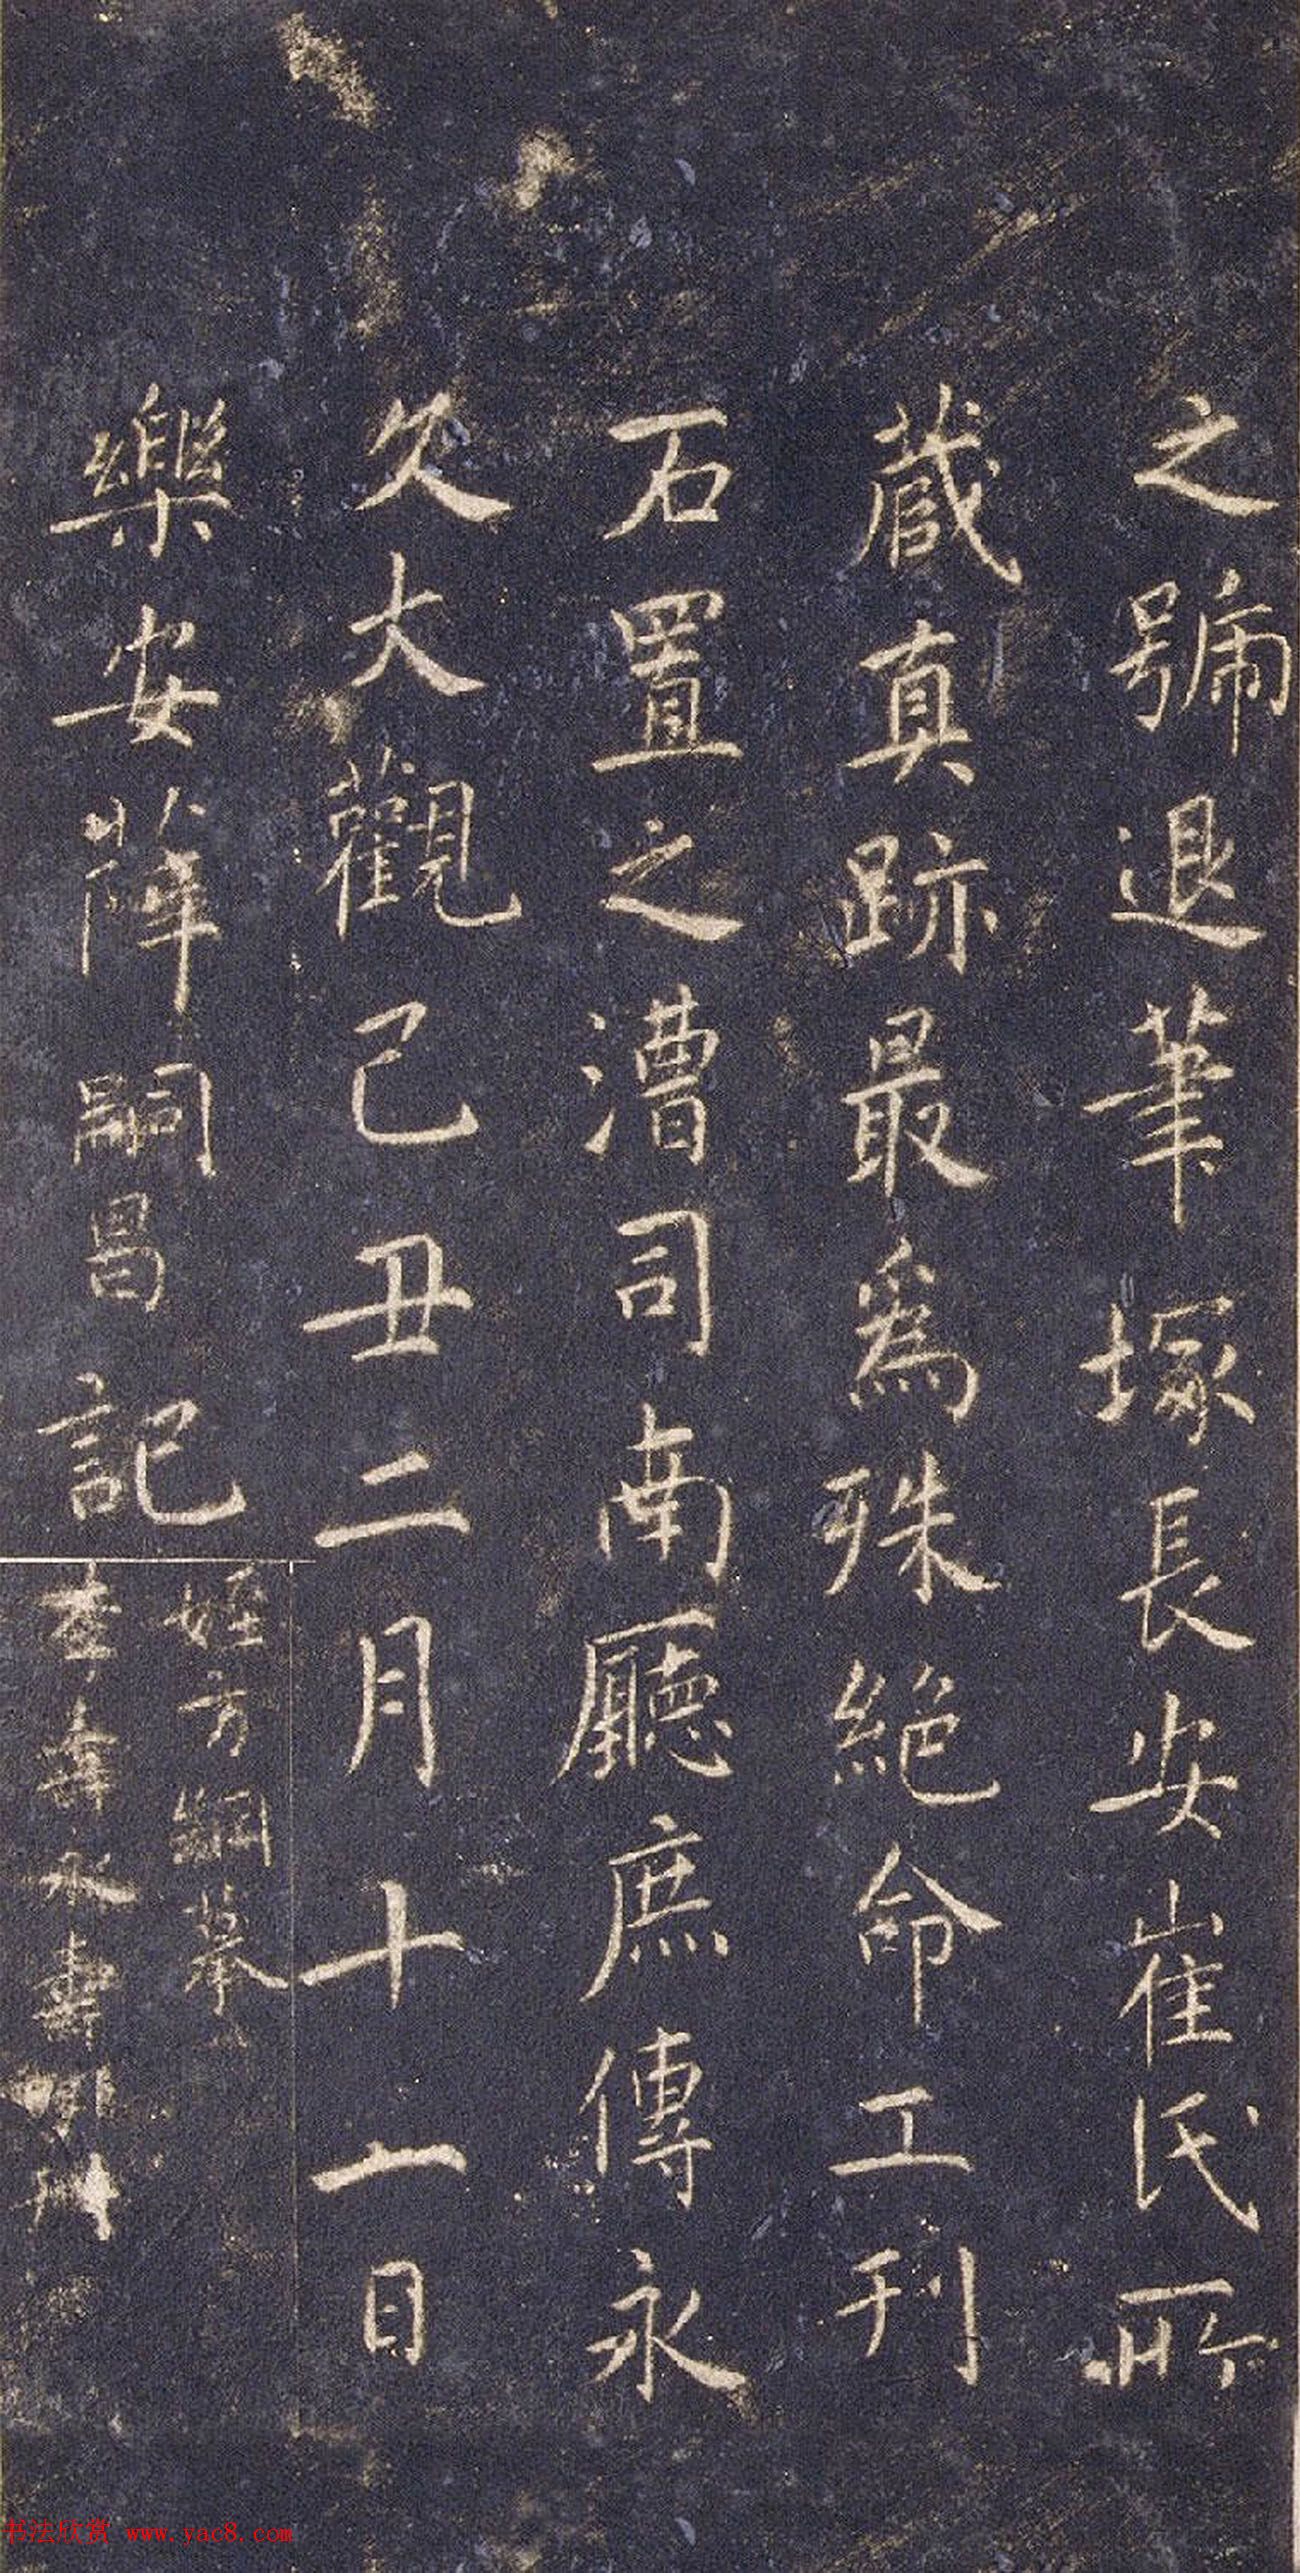 之號退筆塚長安崔氏所
藏真跡最爲殊絶命工刊
石置之漕司南廳庶傳永
久大觀己丑二月十一日
樂安薛嗣昌記
姪方綱摹
李壽永壽明刊
书法欣赏 www.yac8.com